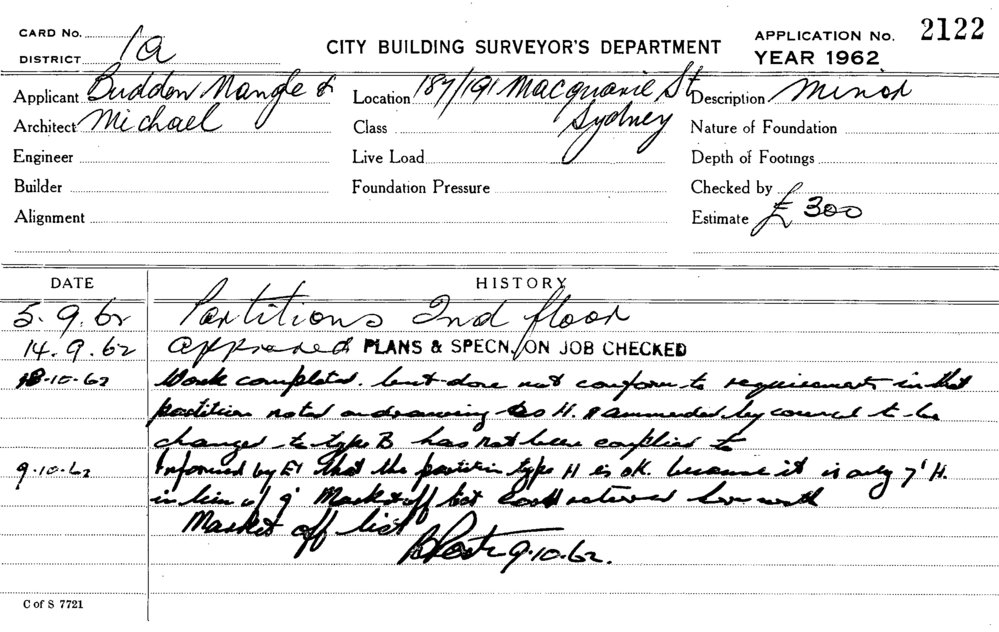 CARD No.
DISTRICT 1a
CITY BUILDING SURVEYOR'S DEPARTMENT
APPLICATION No. 2122
YEAR 1962
Applicant Budden Nangle &
Architect Michael
Engineer
Builder
Alignment
Location 187/191 Macquarie St
Sydney
Class
Live Load
Foundation Pressure
Description Minor
Nature of Foundation
Depth of Footings
Checked by
Estimate £ 300
DATE HISTORY
5.9.62 Partitions 2nd floor
14.9.62 approved PLANS & SPECN. ON JOB CHECKED
8-10-62 Work completed. but does not conform to requirements in that
partition noted on drawing as H. & ammended by council to be
changed to type B has not been complied to
9-10-62 Informed by E1 that the partition type H is OK. because it is only 7' H.
in lieu of 9' Marked off list
Marked off list
9.10.62.
C of S 7721